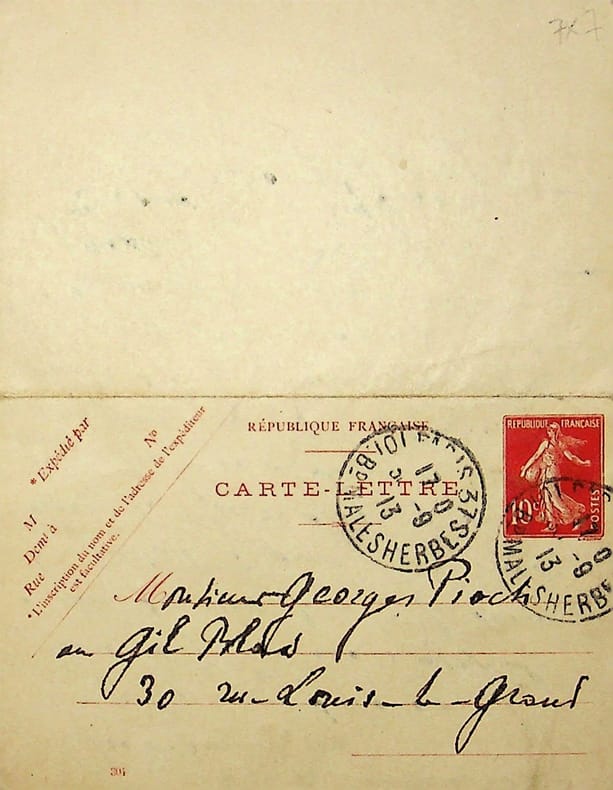 7x7
RÉPUBLIQUE FRANÇAISE
CARTE-LETTRE
* Expédié par
M
Demt à
Rue
No
* L'inscription du nom et de l'adresse de l'expéditeur
est facultative.
PARIS 37
Bd MALESHERBES 101
17
-9
13
RÉPUBLIQUE FRANÇAISE
10c
POSTES
Bd MALESHERB
-9
13
Monsieur Georges Pioch
au Gil Blas
30 rue Louis-le-Grand
304